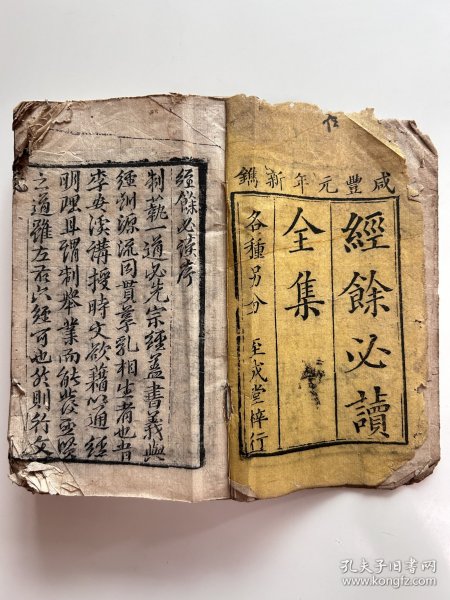 咸豐元年新鐫
經餘必讀
全集
各種另分 至成堂梓行
經餘必讀序
制藝一道必先宗經蓋書義與
經訓源流同貫摹乳相生者也昔
李安溪講授時文欲藉以通經
明理且謂制舉業而能發聖賢
之道雖左右六經可也然則行文
孔夫子旧书网
www.kongfz.com